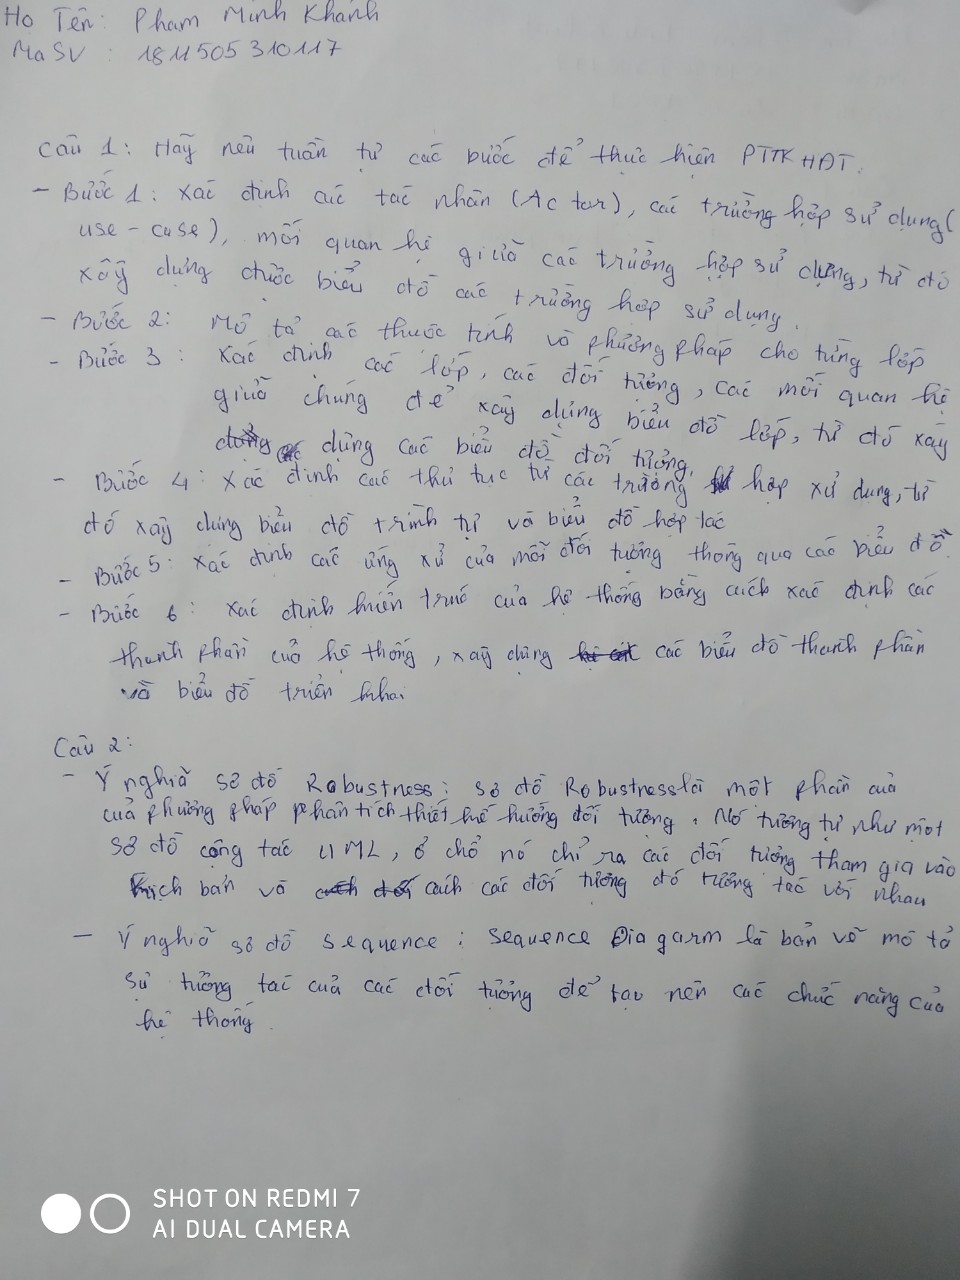 Họ Tên: Phạm Minh Khánh
Mã SV : 1811505310117
Câu 1: Hãy nêu tuần tự các bước để thực hiện PTTK HĐT.
- Bước 1: Xác định các tác nhân (Actor), các trường hợp sử dụng (
use-case), mối quan hệ giữa các trường hợp sử dụng, từ đó
xây dựng được biểu đồ các trường hợp sử dụng.
- Bước 2: Mô tả các thuộc tính và phương pháp cho từng lớp
- Bước 3 : Xác định các lớp, các đối tượng, các mối quan hệ
giữa chúng để xây dựng biểu đồ lớp, từ đó xây
dựng các biểu đồ đối tượng.
- Bước 4 : Xác định các thủ tục từ các trường hợp xử dụng, từ
đó xây dựng biểu đồ trình tự và biểu đồ hợp tác
- Bước 5: Xác định các ứng xử của mỗi đối tượng thông qua các biểu đồ.
- Bước 6 : Xác định kiến trúc của hệ thống bằng cách xác định các
thành phần của hệ thống, xây dựng các biểu đồ thành phần
và biểu đồ triển khai
Câu 2:
- Ý nghĩa sơ đồ Robustness: sơ đồ Robustness là một phần của
của phương pháp phân tích thiết kế hướng đối tượng. Nó tương tự như một
sơ đồ cộng tác UML, ở chổ nó chỉ ra các đối tượng tham gia vào
kịch bản và cách các đối tượng đó tương tác với nhau
- Ý nghĩa sơ đồ sequence: Sequence Diagarm là bản vẽ mô tả
sự tương tác của các đối tượng để tạo nên các chức năng của
hệ thống.
SHOT ON REDMI 7
AI DUAL CAMERA